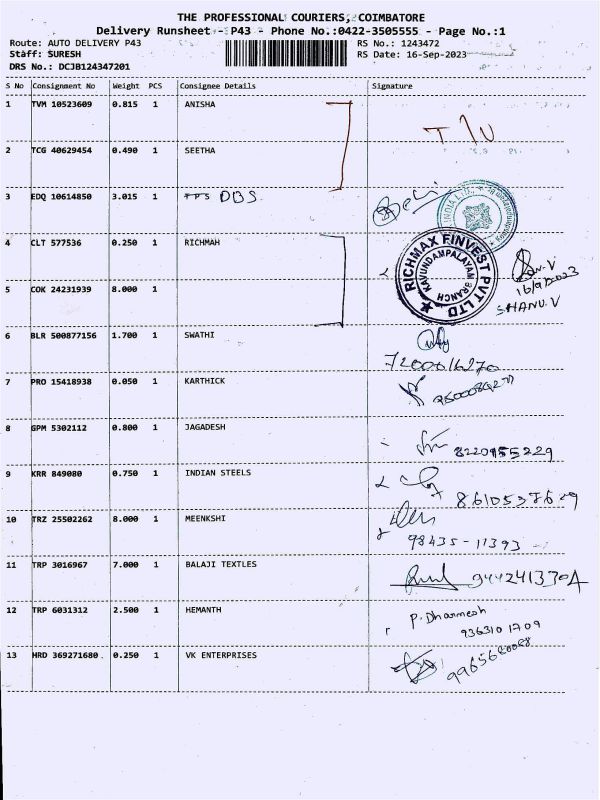 THE PROFESSIONAL COURIERS, COIMBATORE
Delivery Runsheet - P43 - Phone No.:0422-3505555 - Page No.:1
Route: AUTO DELIVERY P43 RS No.: 1243472
Staff: SURESH RS Date: 16-Sep-2023
DRS No.: DCJB124347201
S No Consignment No Weight PCS Consignee Details Signature
1 TVM 10523609 0.815 1 ANISHA
T/U
2 TCG 40629454 0.490 1 SEETHA
3 EDQ 10614850 3.015 1 TPS DBS
INDIA LTD.,
4 CLT 577536 0.250 1 RICHMAH
RICHMAX FINVEST PVT LTD
KAVUNDAMPALAYAM BRANCH
16/9/2023
SHANU.V
5 COK 24231939 8.000 1
6 BLR 500877156 1.700 1 SWATHI
7200016270
7 PRO 15418938 0.050 1 KARTHICK
8 GPM 5302112 0.800 1 JAGADESH
8220955229
9 KRR 849080 0.750 1 INDIAN STEELS
10 TRZ 25502262 8.000 1 MEENKSHI
98435-11393
11 TRP 3016967 7.000 1 BALAJI TEXTLES
12 TRP 6031312 2.500 1 HEMANTH
P. Dharmesh
9363101709
13 HRD 369271680 . 0.250 1 VK ENTERPRISES